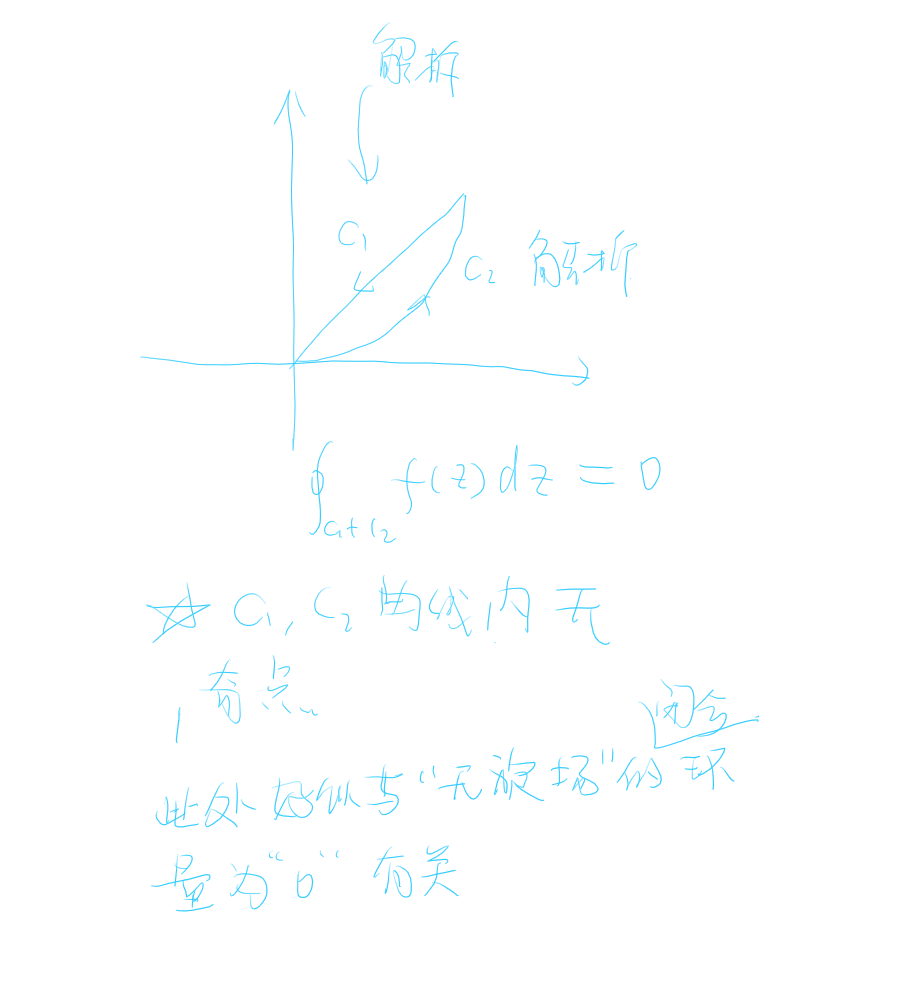 解析
C₁
C₂ 解析
∮_{C₁+C₂} f(z)dz = 0
☆ C₁, C₂ 曲线内无
奇点
闭合
此处好似与“无旋场”的环
量为“0”有关